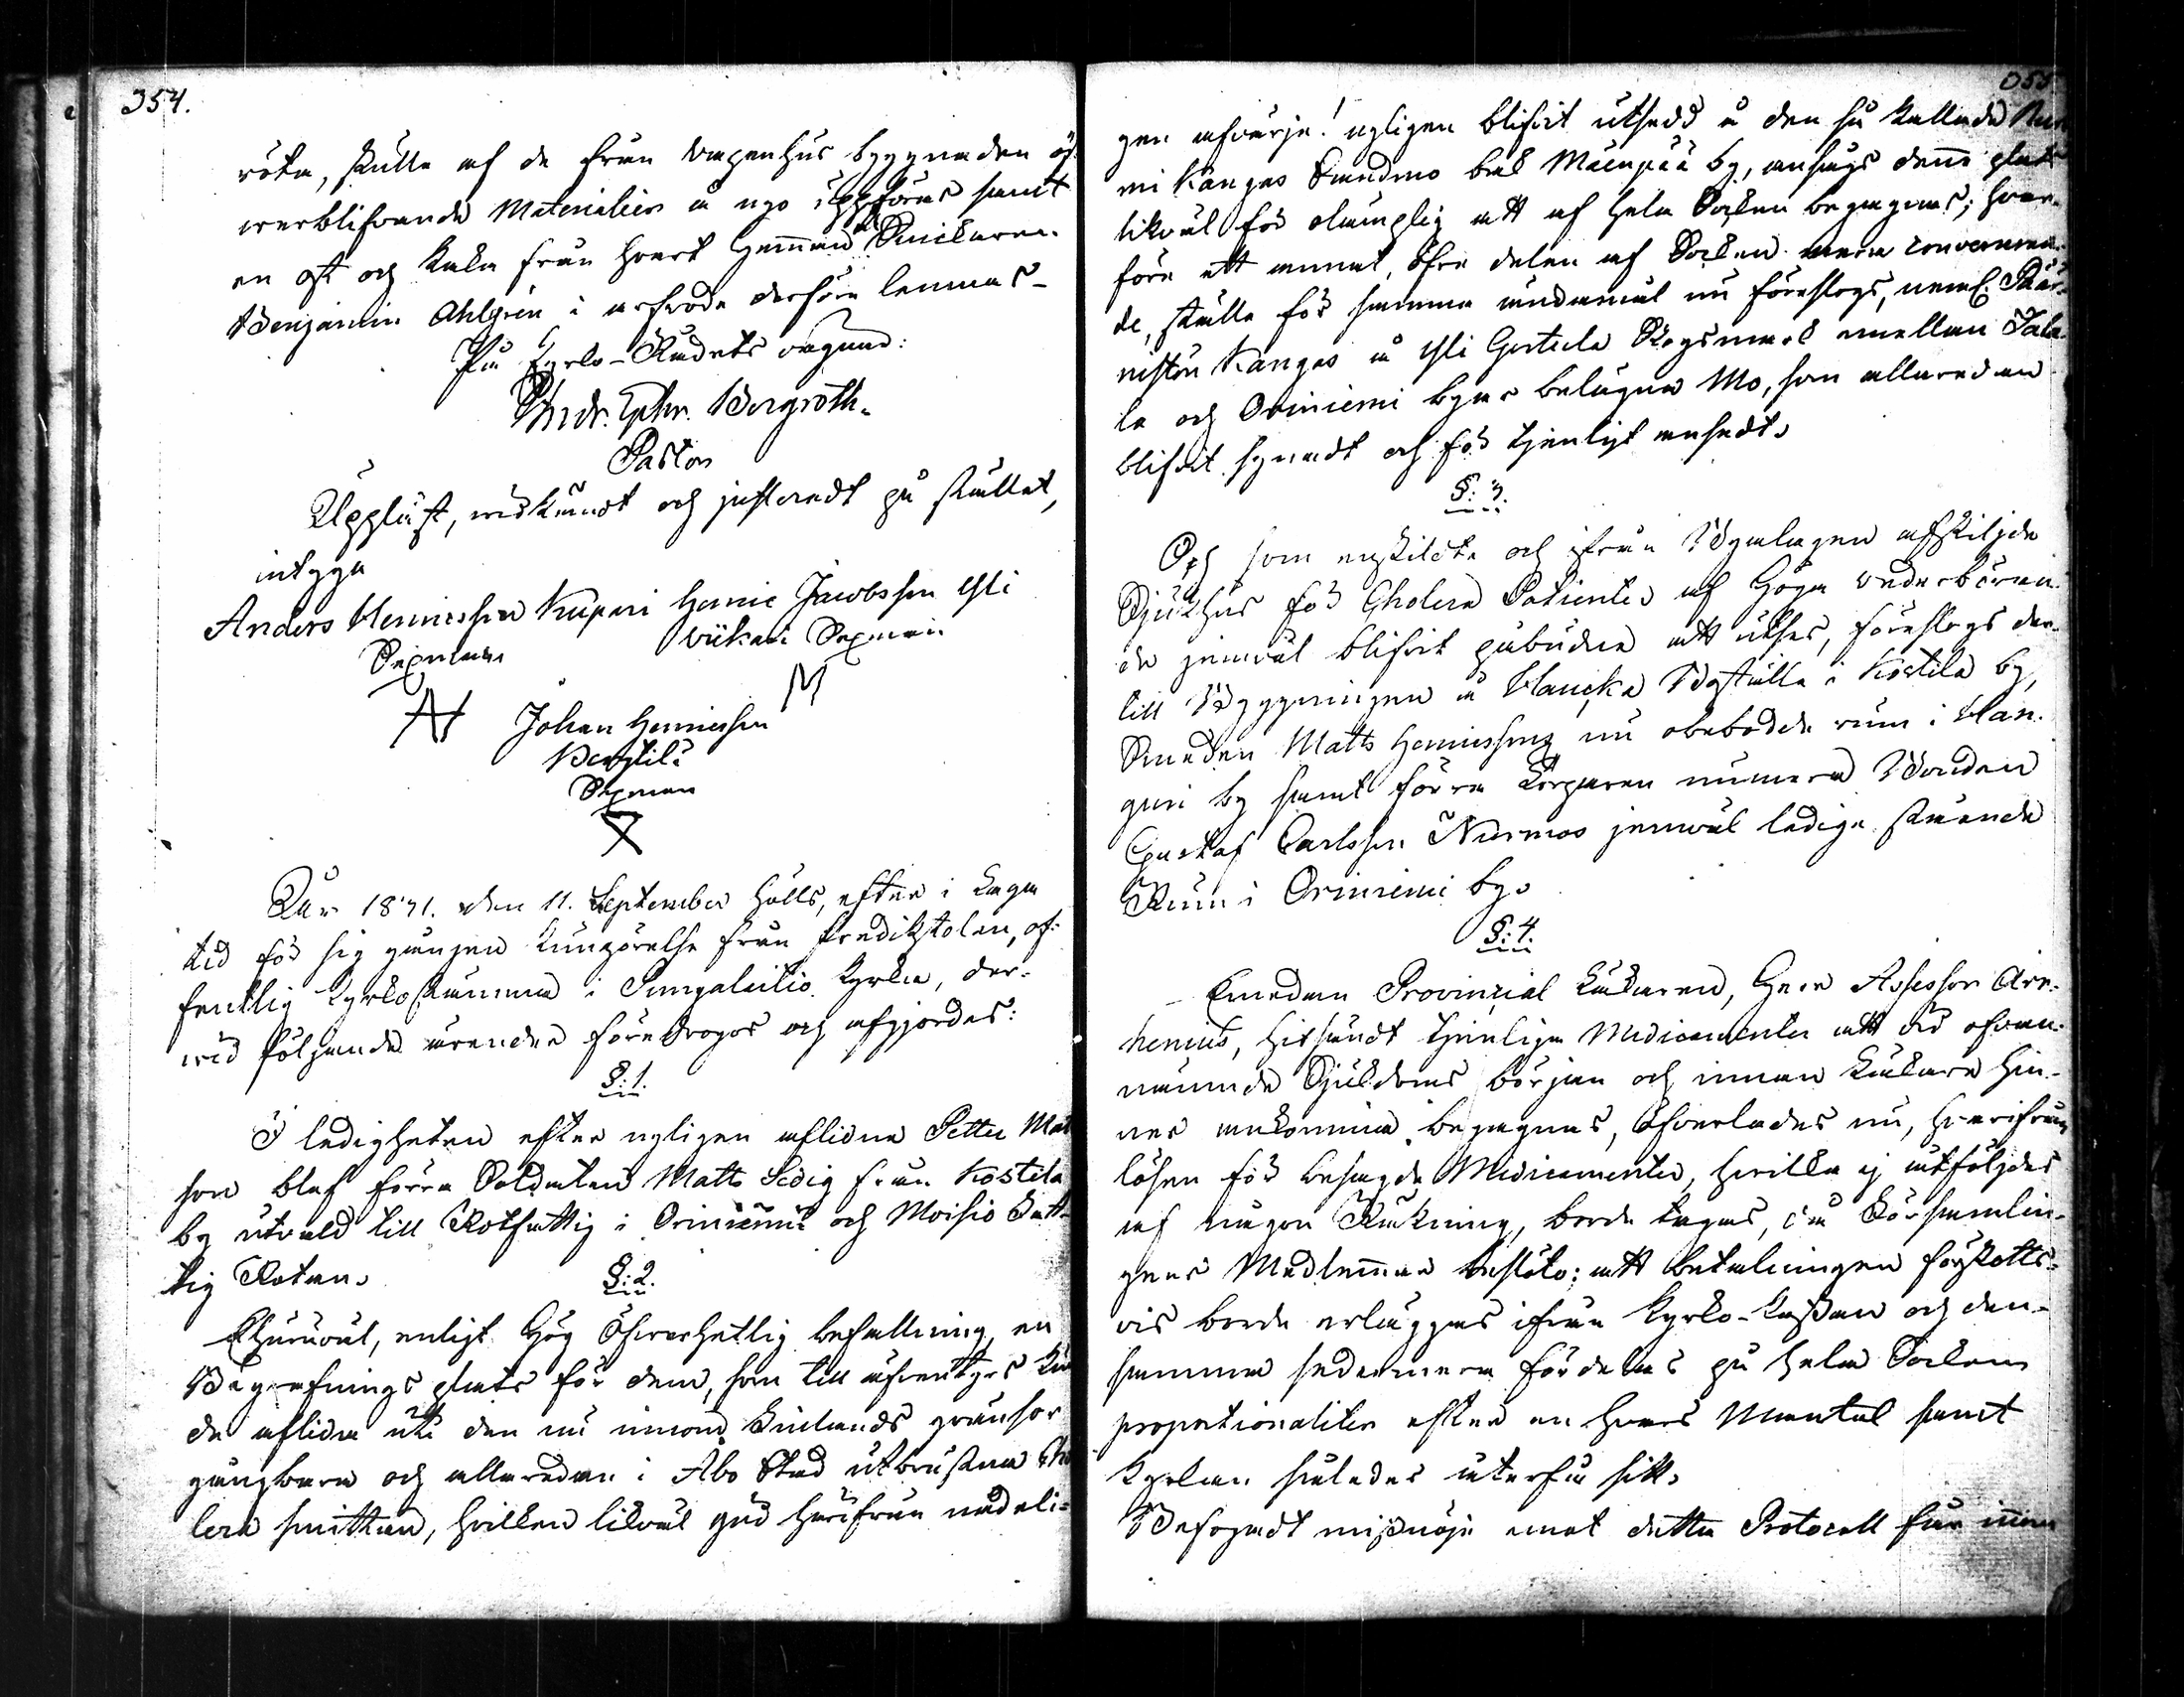 354.
röta, skulle af de från wapenhus byggnaden öf-
werblifvande Materialier å nyo uppföras samt
en ost och kaka från hvart Hemman till Snickaren
Benjamin Ahlgrén i arfvode derföre lemnas_
På Kyrko-Rådets vägnar:
Andr. Ephr. Bergroth.
Pastor
Uppläst, widkändt och justeradt på stället,
intyga
Anders Henricsson Kupari Henric Jacobsson Yli
Sexman Wikari Sexman
Johan Henricsson
Bertilä
Sexman
Åhr 1831. den 11. September hölls, efter i laga
tid för sig gången kungörelse från Predikstolen, of-
fentlig Kyrkostämma i Pungalaitio Kyrka, der-
wid följande ärender föredrogos och afgjordes:
§: 1.
I ledigheten efter nyligen aflidne Petter Mat
son blef förra Soldaten Matts Ledig från Kostila
by utvald till Rothfattig i Oriniemi och Moisio Fatt-
tig Rotan.
§: 2.
Ehuruväl, enligt Hög Öfverhetlig befallning, en
Begrafnings plats för dem, som till äfventyrs kun
de aflida uti den nu innom Finlands gränsor
gångbara och allaredan i Åbo Stad utbrustna Cho
lera smittan, hvilken likväl Gud härifrån nådeli-
355
gen afvärje! nyligen blifvit utsedd å den så kallade
mi Kangas Sandmo bak Mäenpää by, ansågs denne plats
likväl för olämplig att af hela Socken begagnas; hvar-
före ett annat, öfre delen af Socken mera convenieran-
de, ställe för samma ändamål nu föreslogs, neml.
niston Kangas å Yli Gertula Skogsmark emellan Tala-
la och Oriniemi byar belägna Mo, som allaredan
blifvit synadt och för tjenligt ansedt.
§: 3.
Och som enskildte och ifrån Byalagen afskiljde
Sjukhus för Cholera Patienter af Höga wederböran-
de jemväl blifvit påbudna att utses, föreslogs der-
till Byggningen å Hancka Boställe i Kostila by,
Smeden Matts Henricssons nu obebodde rum i Han-
guri by samt förra Torparen numera Bonden
Gustaf Carlsson Nurmos jemväl ledige stående
Rum i Oriniemi by.
§: 4.
Emedan Provinzial Läkaren, Herr Assessor Arr-
henius, hitsändt tjenlige Medicamenter att vid ofvan-
nämnde Sjukdoms början och innan Läkare hin-
ner ankomma begagnas, öfverlades nu, hvarifrån
lösen för besagde Medicamenter, hvilka ej åtföljdes
af någon Räkning, borde tagas, då Församlin-
gens Medlemmar beslöto: att betalningen förskotts-
vis borde erläggas ifrån Kyrko-Kassan och den-
samma sedermera fördelas på hela Socken
proportionaliter efter en hvars Mantal samt
Kyrkan således återfå sitt.
Befogadt missnöje emot detta Protocoll får innom